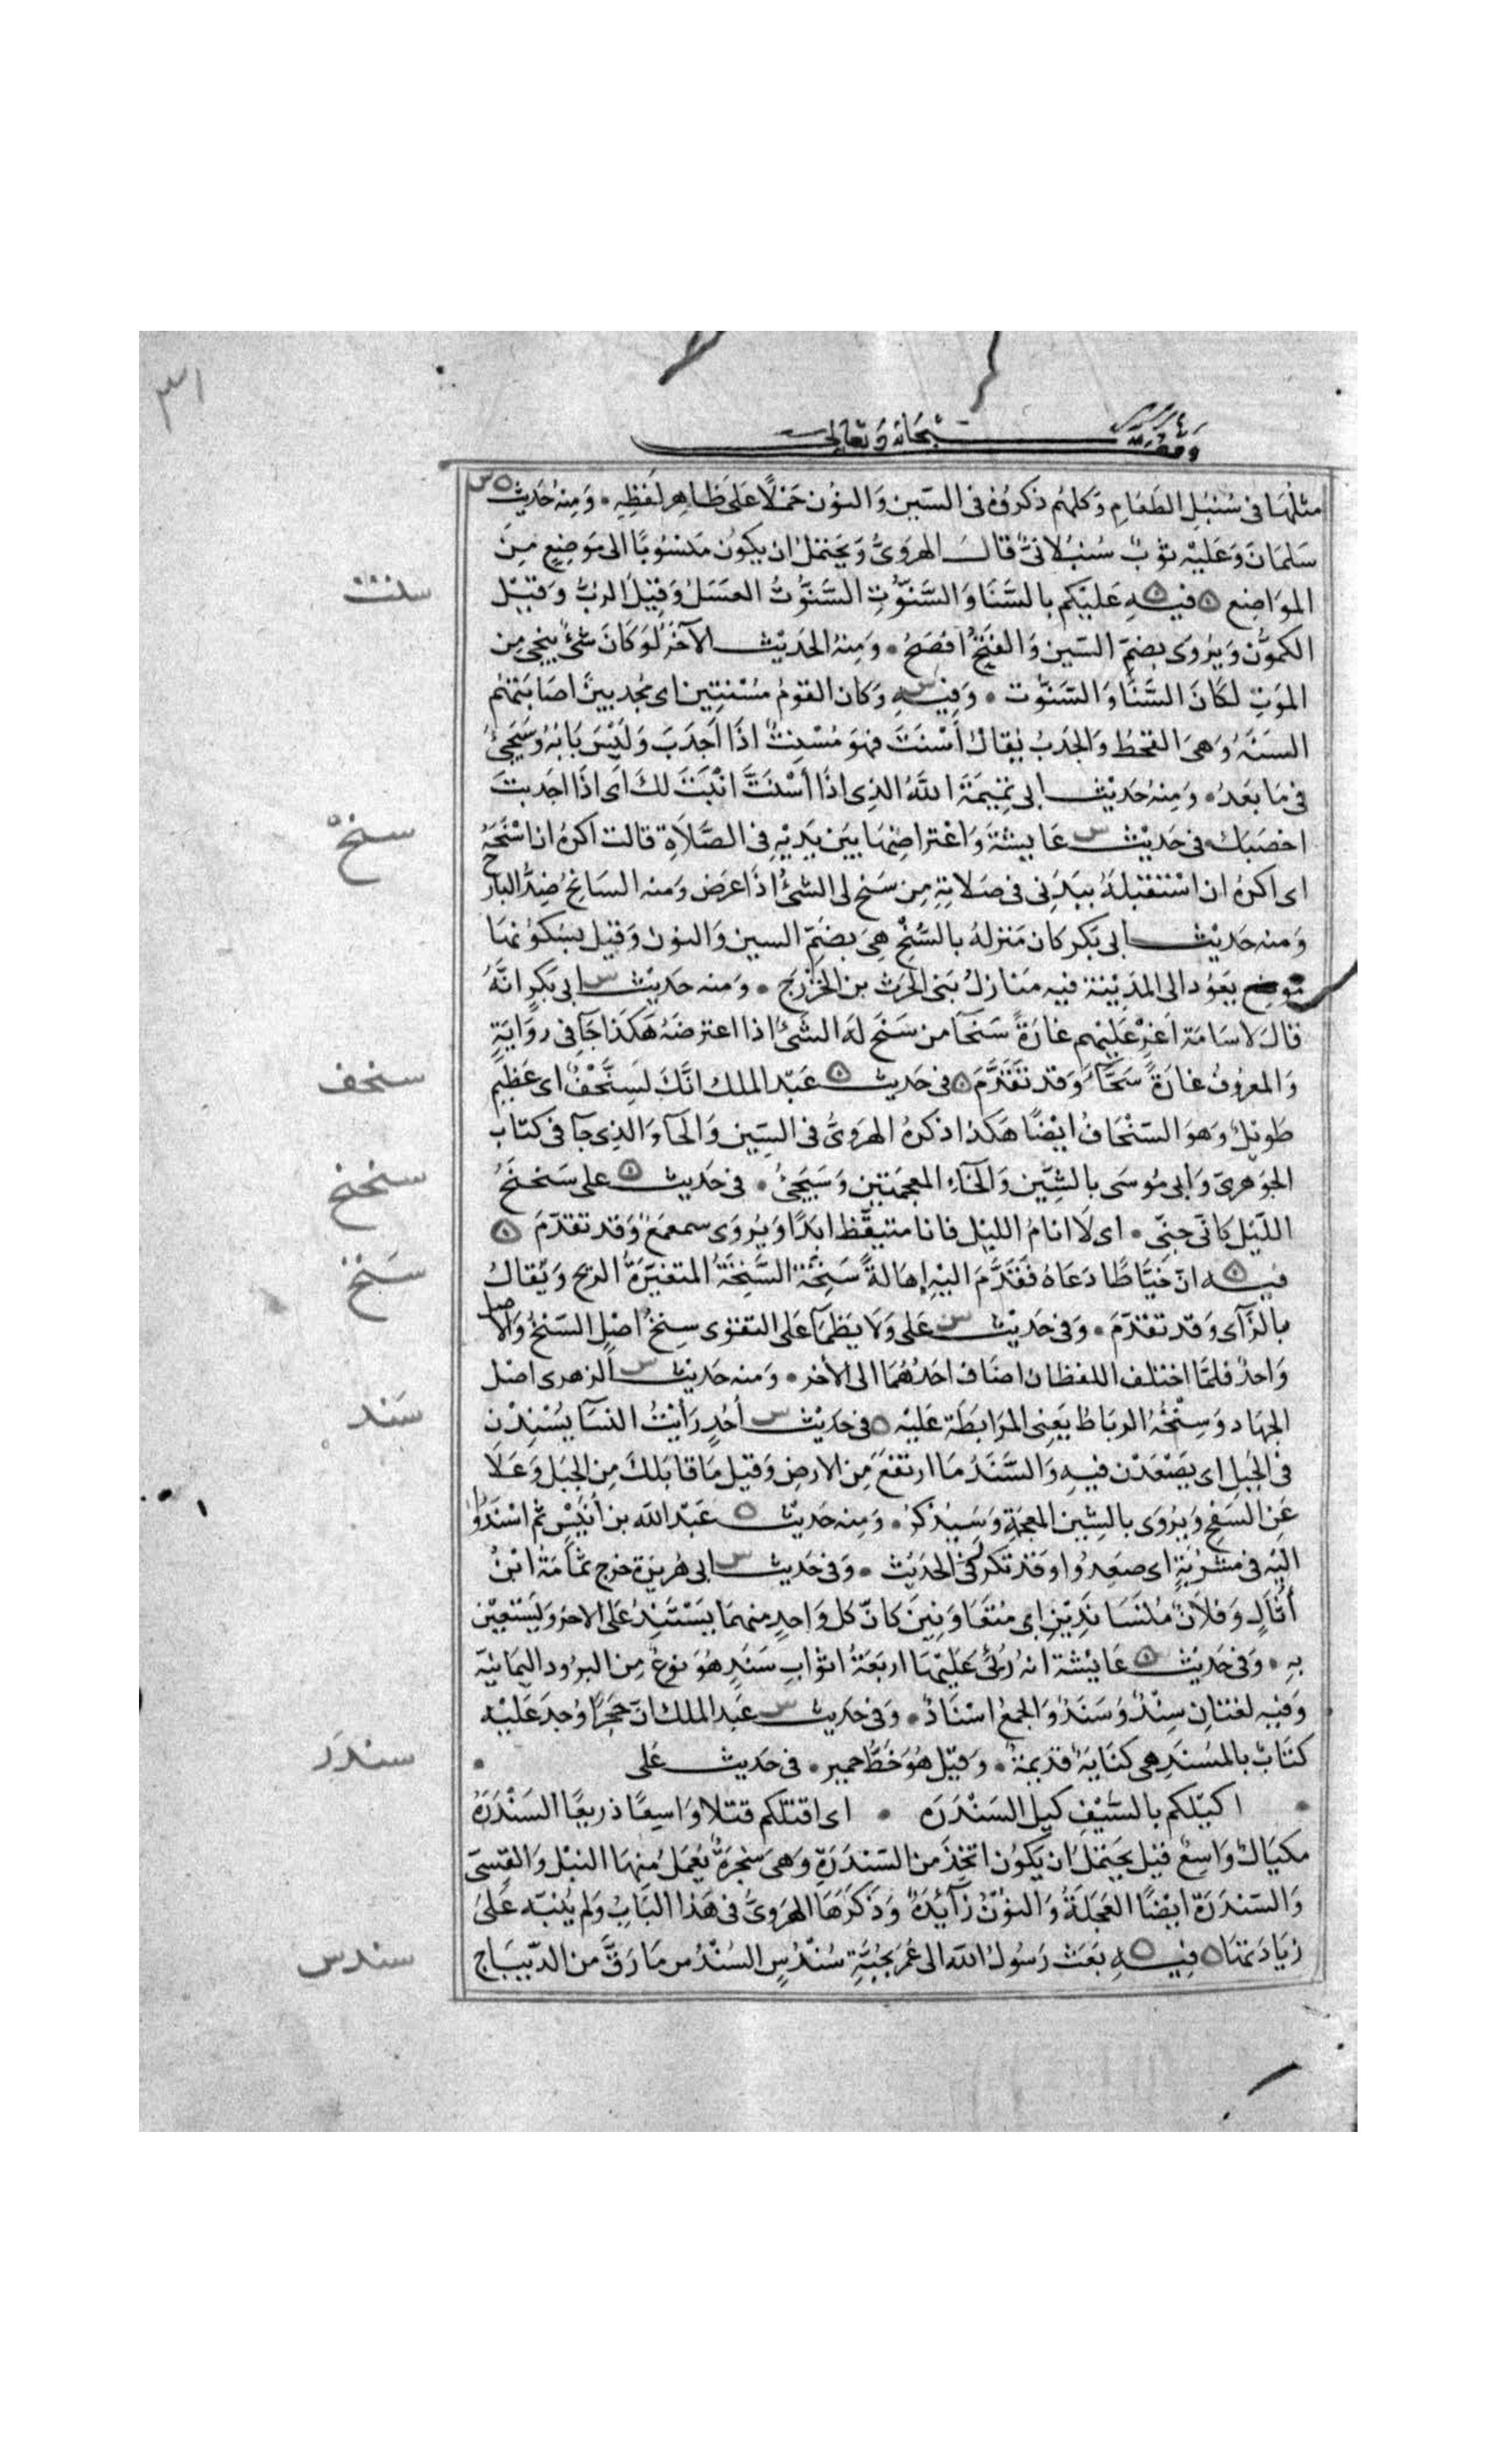 ٣١
وقف لله سبحانه وتعالى
مثلها فى سُنبُلِ الطَعَامِ وَكلهُم ذكروُهُ فى السّين وَالنوُن حَملًا عَلىَ ظاهِر لَفظِهِ • وَمِنهُ حَديث س
سَلمَانَ وَعَليْه ثوْبٌ سُنبُلانىٌّ قالَ الهرَوىُّ وَيحتملُ ان يكوُن مَنسُوبًا الى مَوضِعٍ مِنَ
سنت
الموَاضِع ه فيهِ عَليْكم بالسَّنَا وَالسَّنوّتِ السَّنوُّتُ العَسَلُ وَقيْلَ الربُّ وَقيْل
الكموُّن وَيرُوَى بضمّ السّين وَالفَتحُ افصَحُ • وَمِنهُ الحَديْث الآخَرُ لَوكَانَ شئٌ ينجى مِن
الموَتِ لكَانَ السَّنَا وَالسَّنوُّت • وَفيْهِ وَكان القومُ مُسْنِتِين اى مجُدبينَ اصَابَتهُم
السَنَةُ وَهىَ القحطُ وَالجَدبُ يُقالُ أَسْنَتَ فهوَ مُسْنِتٌ اذَا اَجدَبَ وَليْسَ بَابَهُ وَسَيَجئُ
فى مَا بَعَدُ • وَمِنهُ حَديْث ابى تميْمَةَ اللَّهُ الذِى اذَا أسْنَتَّ انْبَتَ لكَ اَى اذَا اجدبتَ
سنح
اخصَبَك فى حَديْث س عَايشةَ وَاعْتراضِهَا بَيَن يَديْهِ فى الصَّلَاةِ قالت اكرهُ ان اسْنَحَهُ
اى اكرهُ ان اسْتَقبلهُ ببَدَنى فى صَلاتهِ مِن سَنح لى الشئُ اذَا عرَض وَمنه السَانحُ ضِدُّ البارح
وَمنه حَديْث ابى بَكر كان مَنزلهُ بالسُّنْحِ هِىَ بضَمّ السين وَالنون وَقيل بسُكوُنهَا
مَوضِع بعَوُد الى المدِيْنة فيه مَنَازِلُ بَنى الحَرث بن الخَزْرَج • وَمنه حَديْث س ابى بَكرٍ انَّهُ
قالَ لاسَامَة اَغِرْ عَليْهم غَارَةً سَنحَآ من سَنَح لهَ الشَئُ اذا اعترضَهُ هَكَذَا جَآ فى روَايَةٍ
سنحف
وَالمعروُفُ غَارَةً سَحَّآ وَقَد تقَدَّمَ ه فى حَديث ه عَبْد الملك انّكَ لسِنَّحْفٌ اى عَظِيم
طويْلٌ وَهوَ السنْحَافُ ايْضًا هكذا ذكرهُ الهرَوىُّ فى السِّين وَالحآ وَالذِى جآ فى كتَاب
سنحنح
الجوَهرىّ وَابى مُوسَى بالشِّيَن وَالخَاءِ المعجَمَتين وَسَيَجئُ • فى حَديث ه على سَنَحنَحُ
اللّيْل كانّى جِنّى • اى لَا انامُ الليْل فانا متيقّظ ابَدًا وَيرُوَى سمعمَعُ وَقد تقدّمَ ه
سَنخ
فيه ه انّ خيَّاطًا دَعَاهُ فقَدَّمَ اليْهِ إهَالةً سَنِخَة السَّنِخَةُ المتغيّرَةُ الريح وَيقَالُ
بالزَّآى وَقد تقدّمَ • وَفى حَديْث س عَلى وَلَا يَظمَأ عَلى التقوَى سِنخُ اصْلٍ السَنخُ وَالاصل
وَاحدٌ فلمَّا اختلف اللفظان اضَاف احَدُهُمَا الى الأخر • وَمنه حَديث س الزهرى اصْل
سَند
الجهَاد وَسِنْخُهُ الرباطُ يَعِنى المرَابَطَة عَليْه ه فى حَديْث س أحُدٍ رَأيْتُ النسَآ يُسْنِدْن
فى الجبَلِ اى يَصْعَدْن فيهِ وَالسَّنَدُ مَا ارتفعَ مِن الارضِ وَقيْل مَا قابَلكَ مِن الجبَل وَعَلَا
عَن السَفحِ وَيرُوَى بالشِين المعجَمةِ وَسَيذكرُ • وَمِنه حَديْث ه عَبْد الله بن أُنَيْسٍ ثم اسْنَدُوا
اليْه فى مَشْرُبَةٍ اى صَعِدُوا وَقد تكرّر فى الحَديْث • وَفى حَديث س ابى هُريرَة خرج ثمَامَةُ ابْنُ
أُثَالٍ وَفلَانٌ مُتسَانِدَيْنِ اى مُتعَاوِنِيَن كانّ كل وَاحدٍ منهمَا يَسْتَنِدُ عَلى الاخر وَيَسْتعِيْن
بهِ • وَفى حَديْث ه عَايْشة انهُ رُئىَ عَليْهَا اربَعَةُ اثوَابٍ سَنَدٍ هُوَ نوعٌ مِن البروُد اليَمانيّة
وَفيْهِ لغتانِ سِنْدٌ وَسَنَدٌ وَالجمعُ اسْنَادٌ • وَفى حَديث س عَبد الملك انّ حَجَرًا وُجدَ عَليْه
سندَرَ
كتَابٌ بالمسُنَدِ هى كتَابَةٌ قديمَةٌ • وَقيْل هُوَ خَطُّ حمير • فى حَديث عَلى •
• اكيْلكم بالسّيْفِ كيل السَنْدَرَه • اى اقتلكم قتلا وَاسِعًا ذريعًا السَنْدَرَةُ
مكيَالٌ وَاسِعٌ قيل يحتملُ ان يَكوُن اتخِذَ من السَندَرَةِ وَهى شَجرَةٌ يُعمَلُ مِنهَا النبْل وَالقِسىّ
وَالسّنْدرَة ايْضًا العَجَلةُ وَالنوُنُ زَآئِدَةٌ وَذَكرَهَا الهرَوىُّ فى هَذا البَابِ وَلم ينُبّه عَلىَ
سندس
زيَادَتهَا ه فيهِ ه بعَث رَسُولُ الله الى عُمَر بجُبَّةِ سُنْدُسٍ السُنْدُس مَا رَقَّ من الدّيبَاج